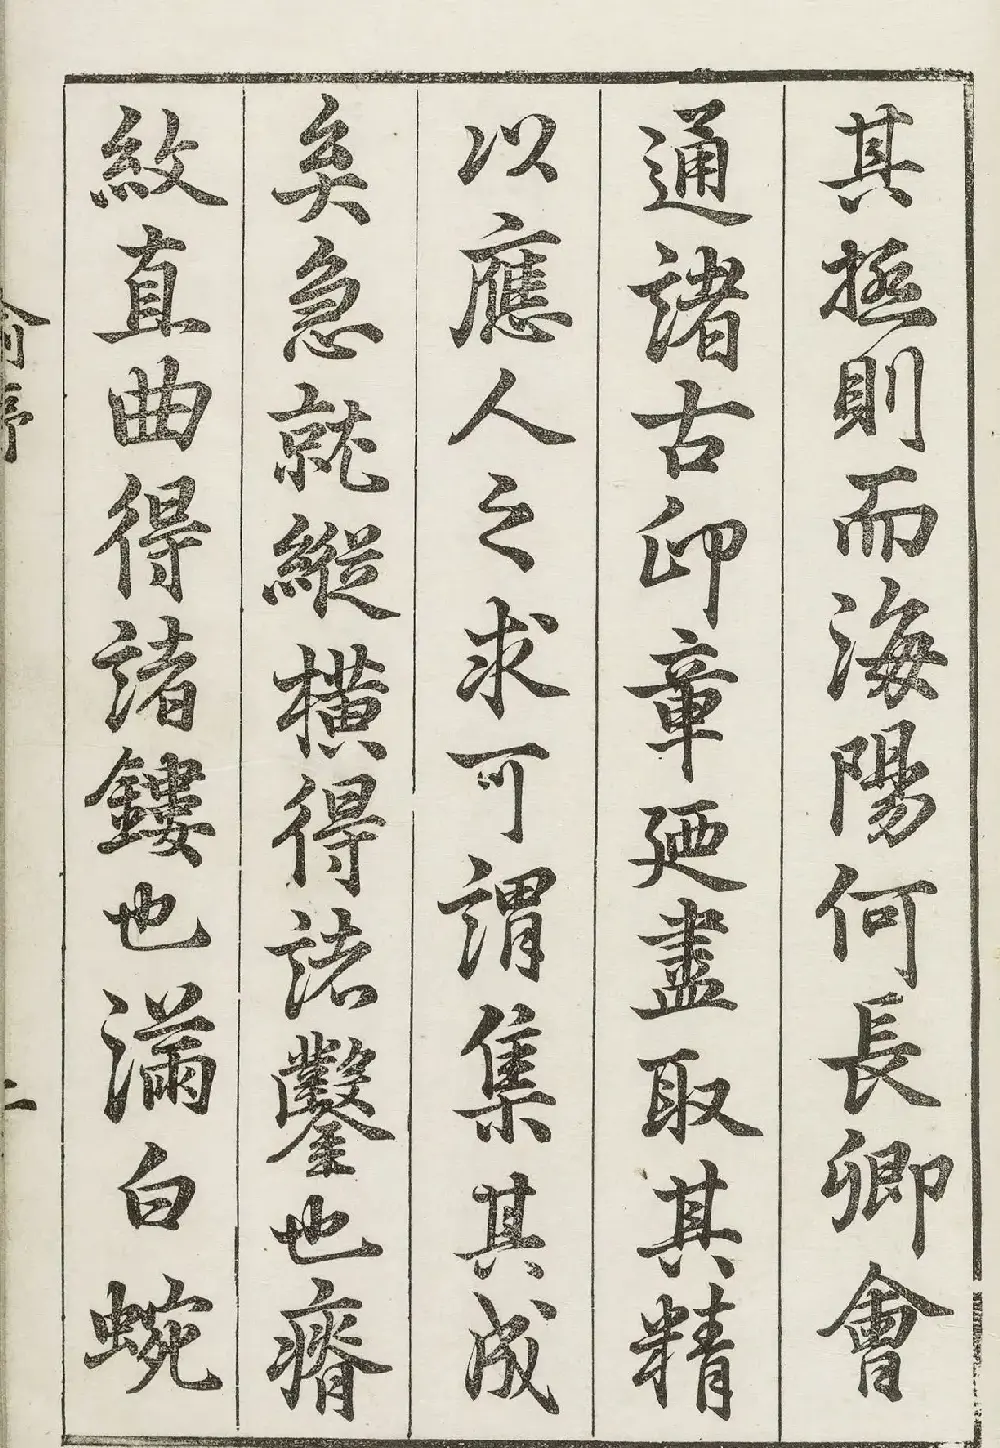 其極則而海陽何長卿會
通諸古印章廼盡取其精
以應人之求可謂集其成
矣急就縱橫得諸鑿也瘠
紋直曲得諸鏤也滿白蜿